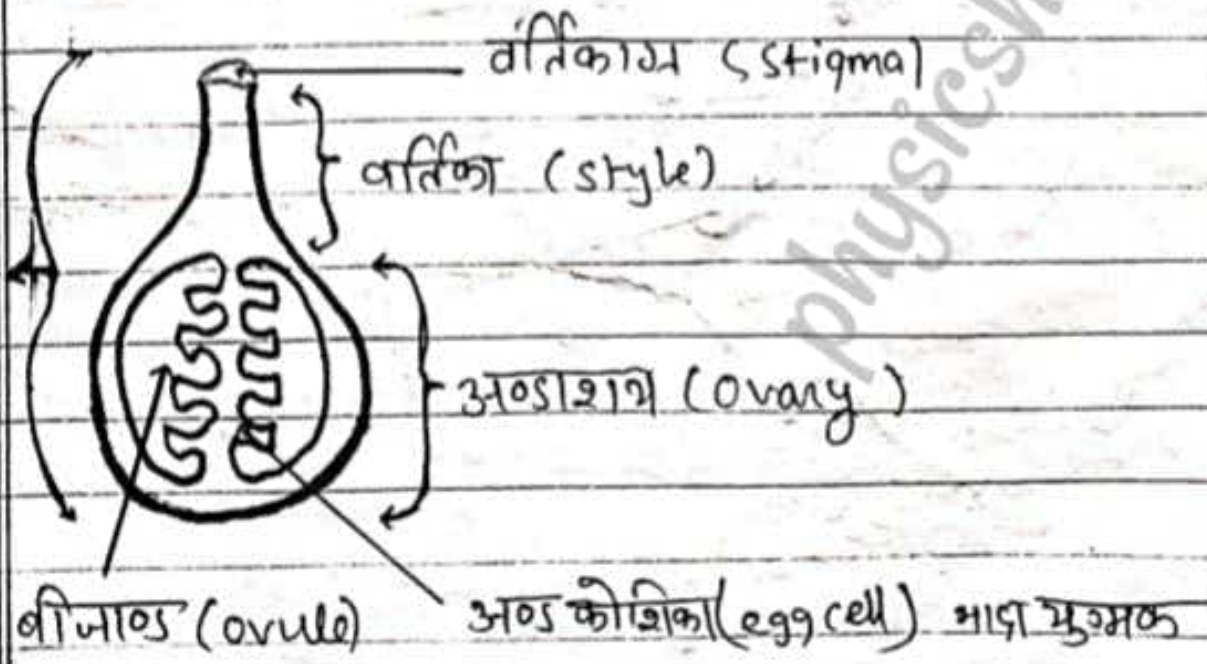 वर्तिकाग्र (Stigma)
वर्तिका (style)
अण्डाशय (Ovary)
बीजाण्ड (ovule)
अण्ड कोशिका (egg cell) मादा युग्मक
physicsh